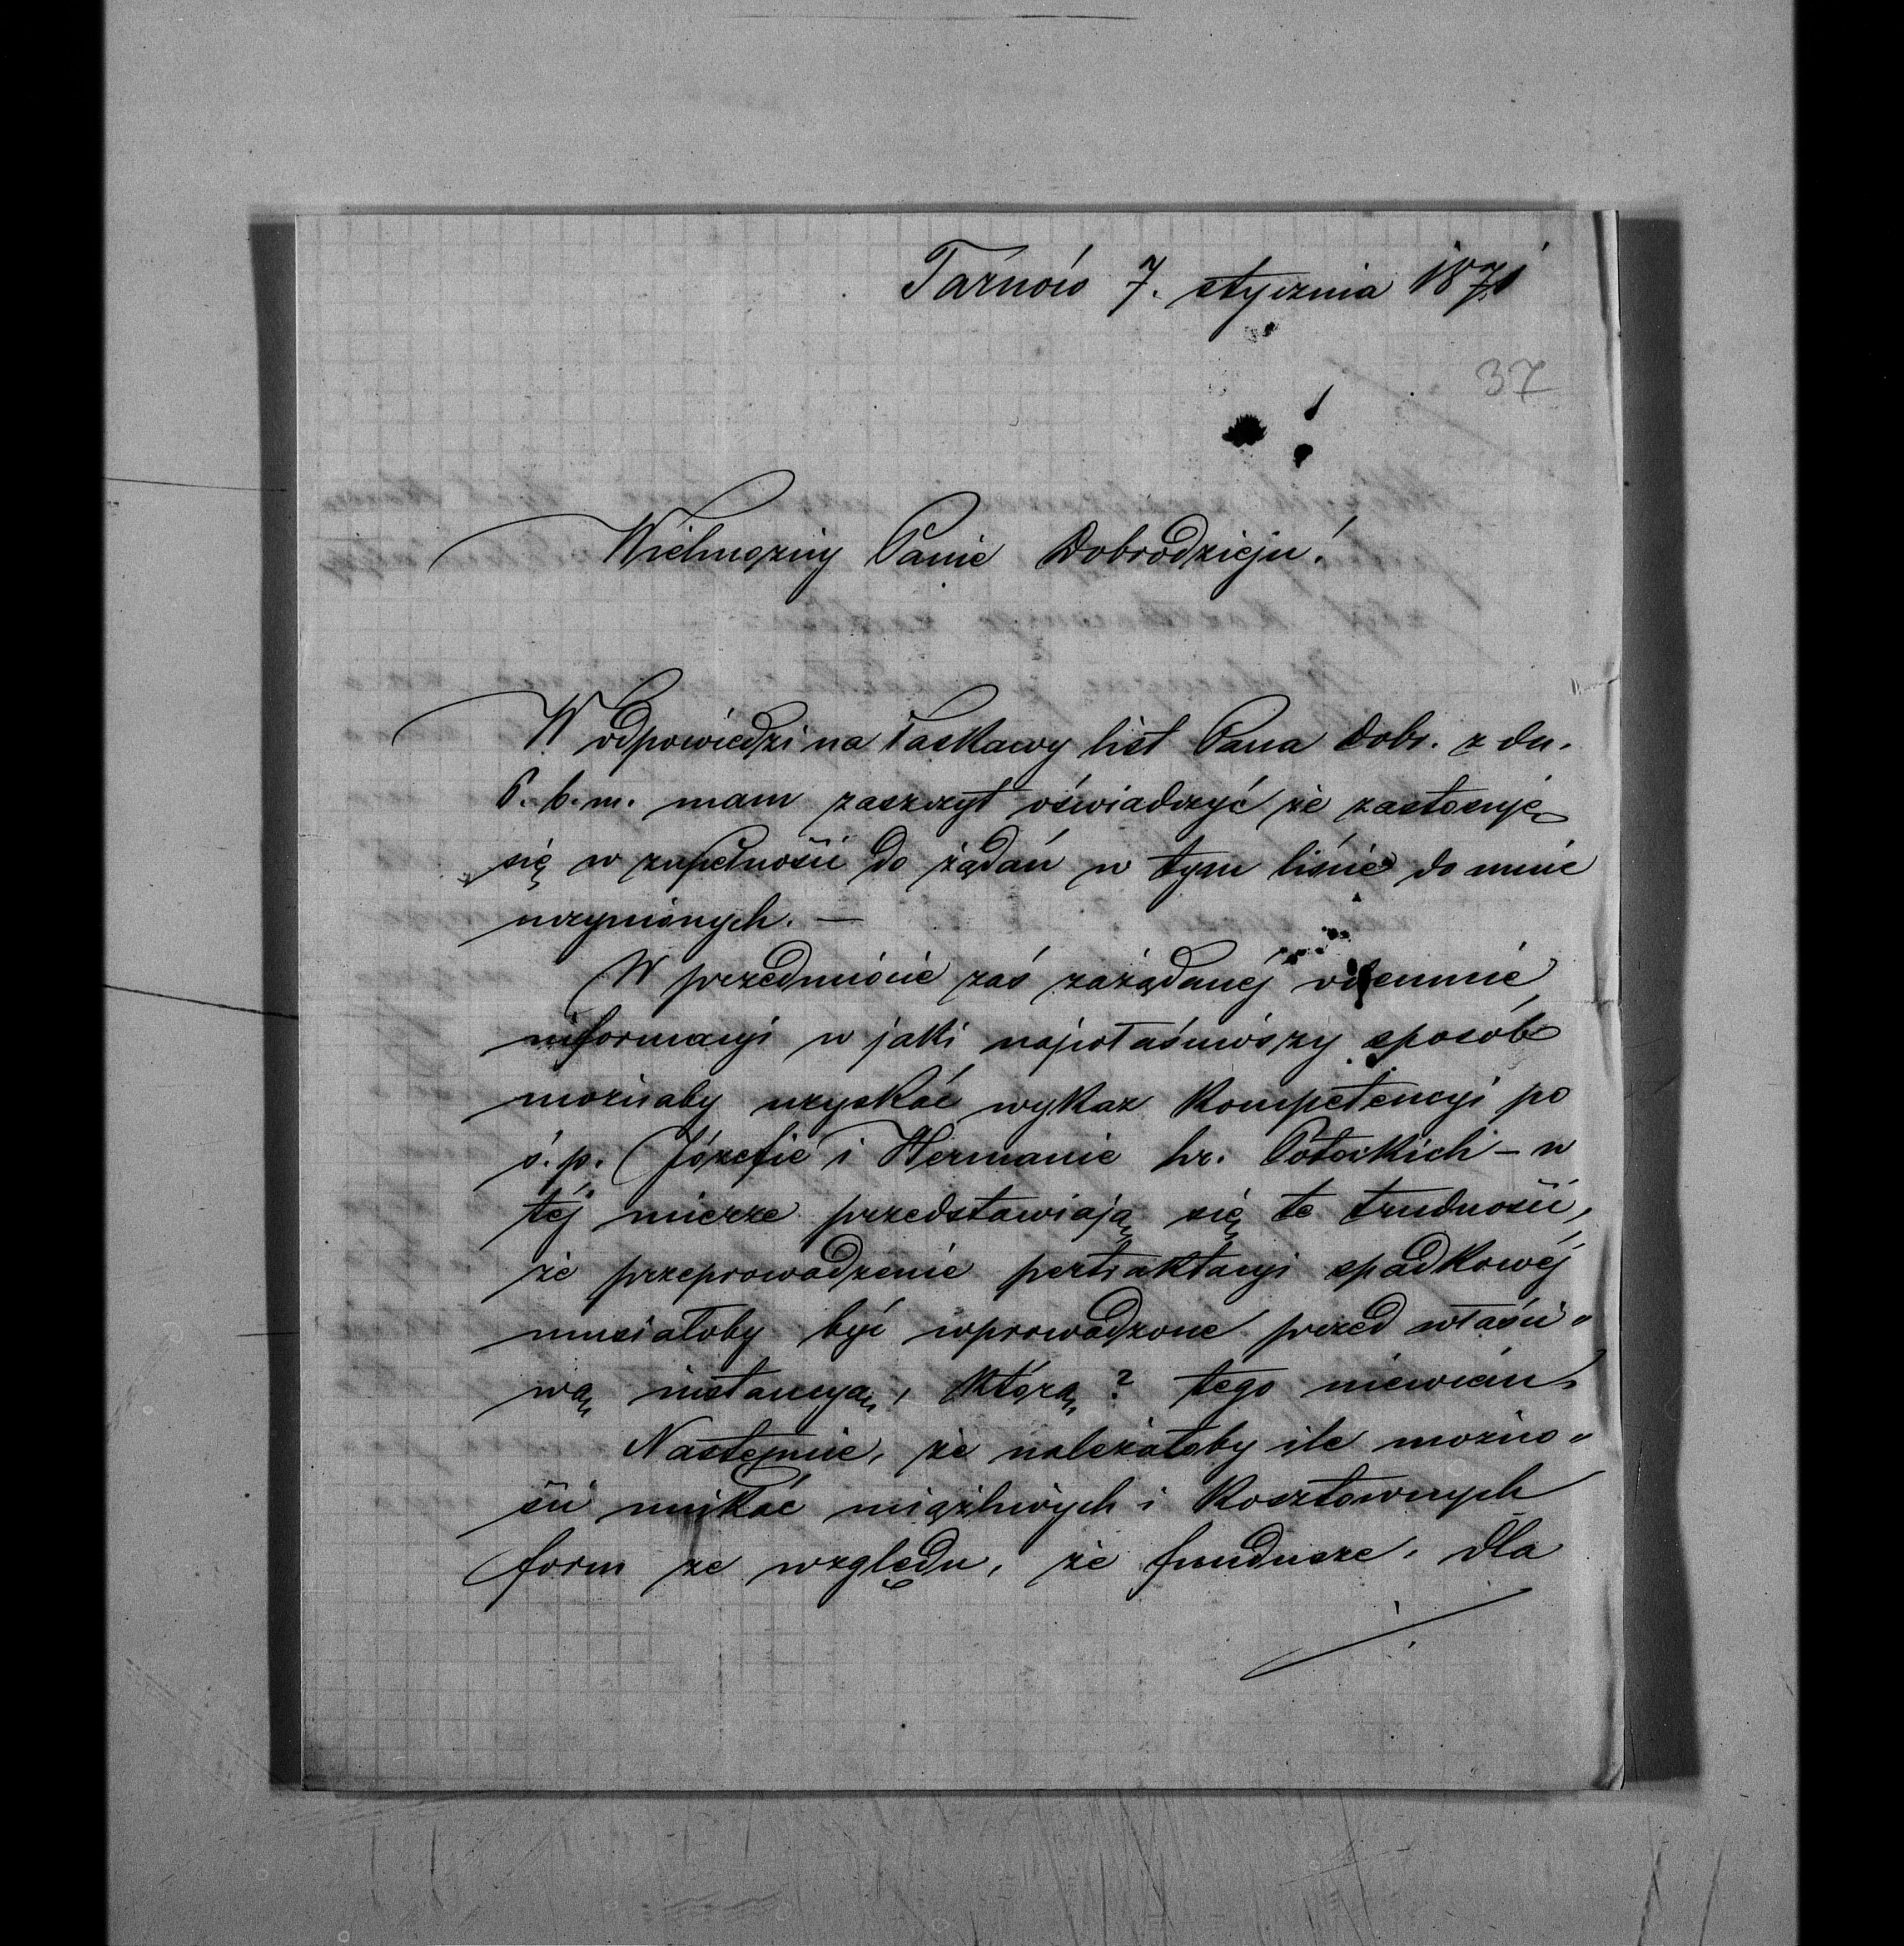 Tarnów 7. stycznia 1871
37
Wielmożny Panie Dobrodzieju!
W odpowiedzi na łaskawy list Pana Dobr. z dn.
6. b. m. mam zaszczyt oświadczyć że zastosuję
się w zupełności do żądań w tym liście do mnie
uczynionych. —
W przedmiocie zaś zażądanéj odemnie
informacyi w jaki najwłaściwszy sposób
możnaby uzyskać wykaz kompetencyi po
ś. p. Józefie i Hermanie hr. Potockich – w
téj mierze przedstawiają się te trudności,
że przeprowadzenie pertraktacyi spadkowéj
musiałoby być wprowadzone przed właści„
wą instancyą, którą? tego niewiem.
Następnie, że należałoby ile możno„
ści unikać uciążliwych i kosztownych
form ze względu, że fundusze, dla